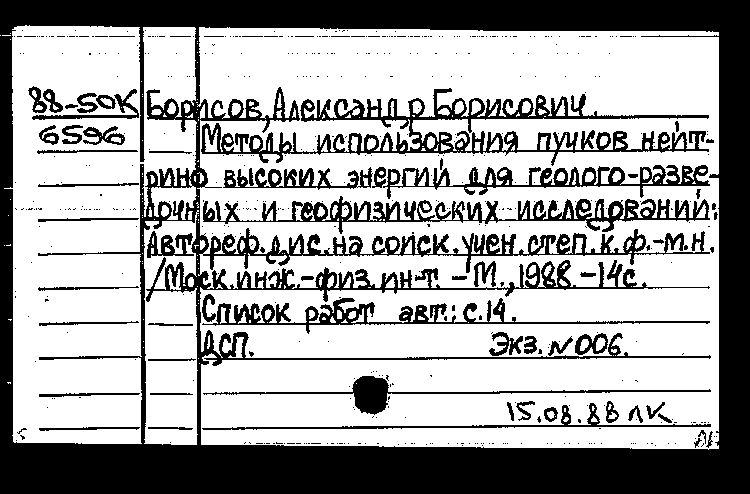 88-50К Борисов, Александр Борисович.
6596 Методы использования пучков нейт-
рино высоких энергий для геолого-разве-
дочных и геофизических исследований:
Автореф. дис. на соиск. учен. степ. к. ф.-м.н.
/Моск. инж.-физ. ин-т. - М., 1988. -14с.
Список работ авт.: с.14.
ДСП. Экз. №006.
15.08.88 лк